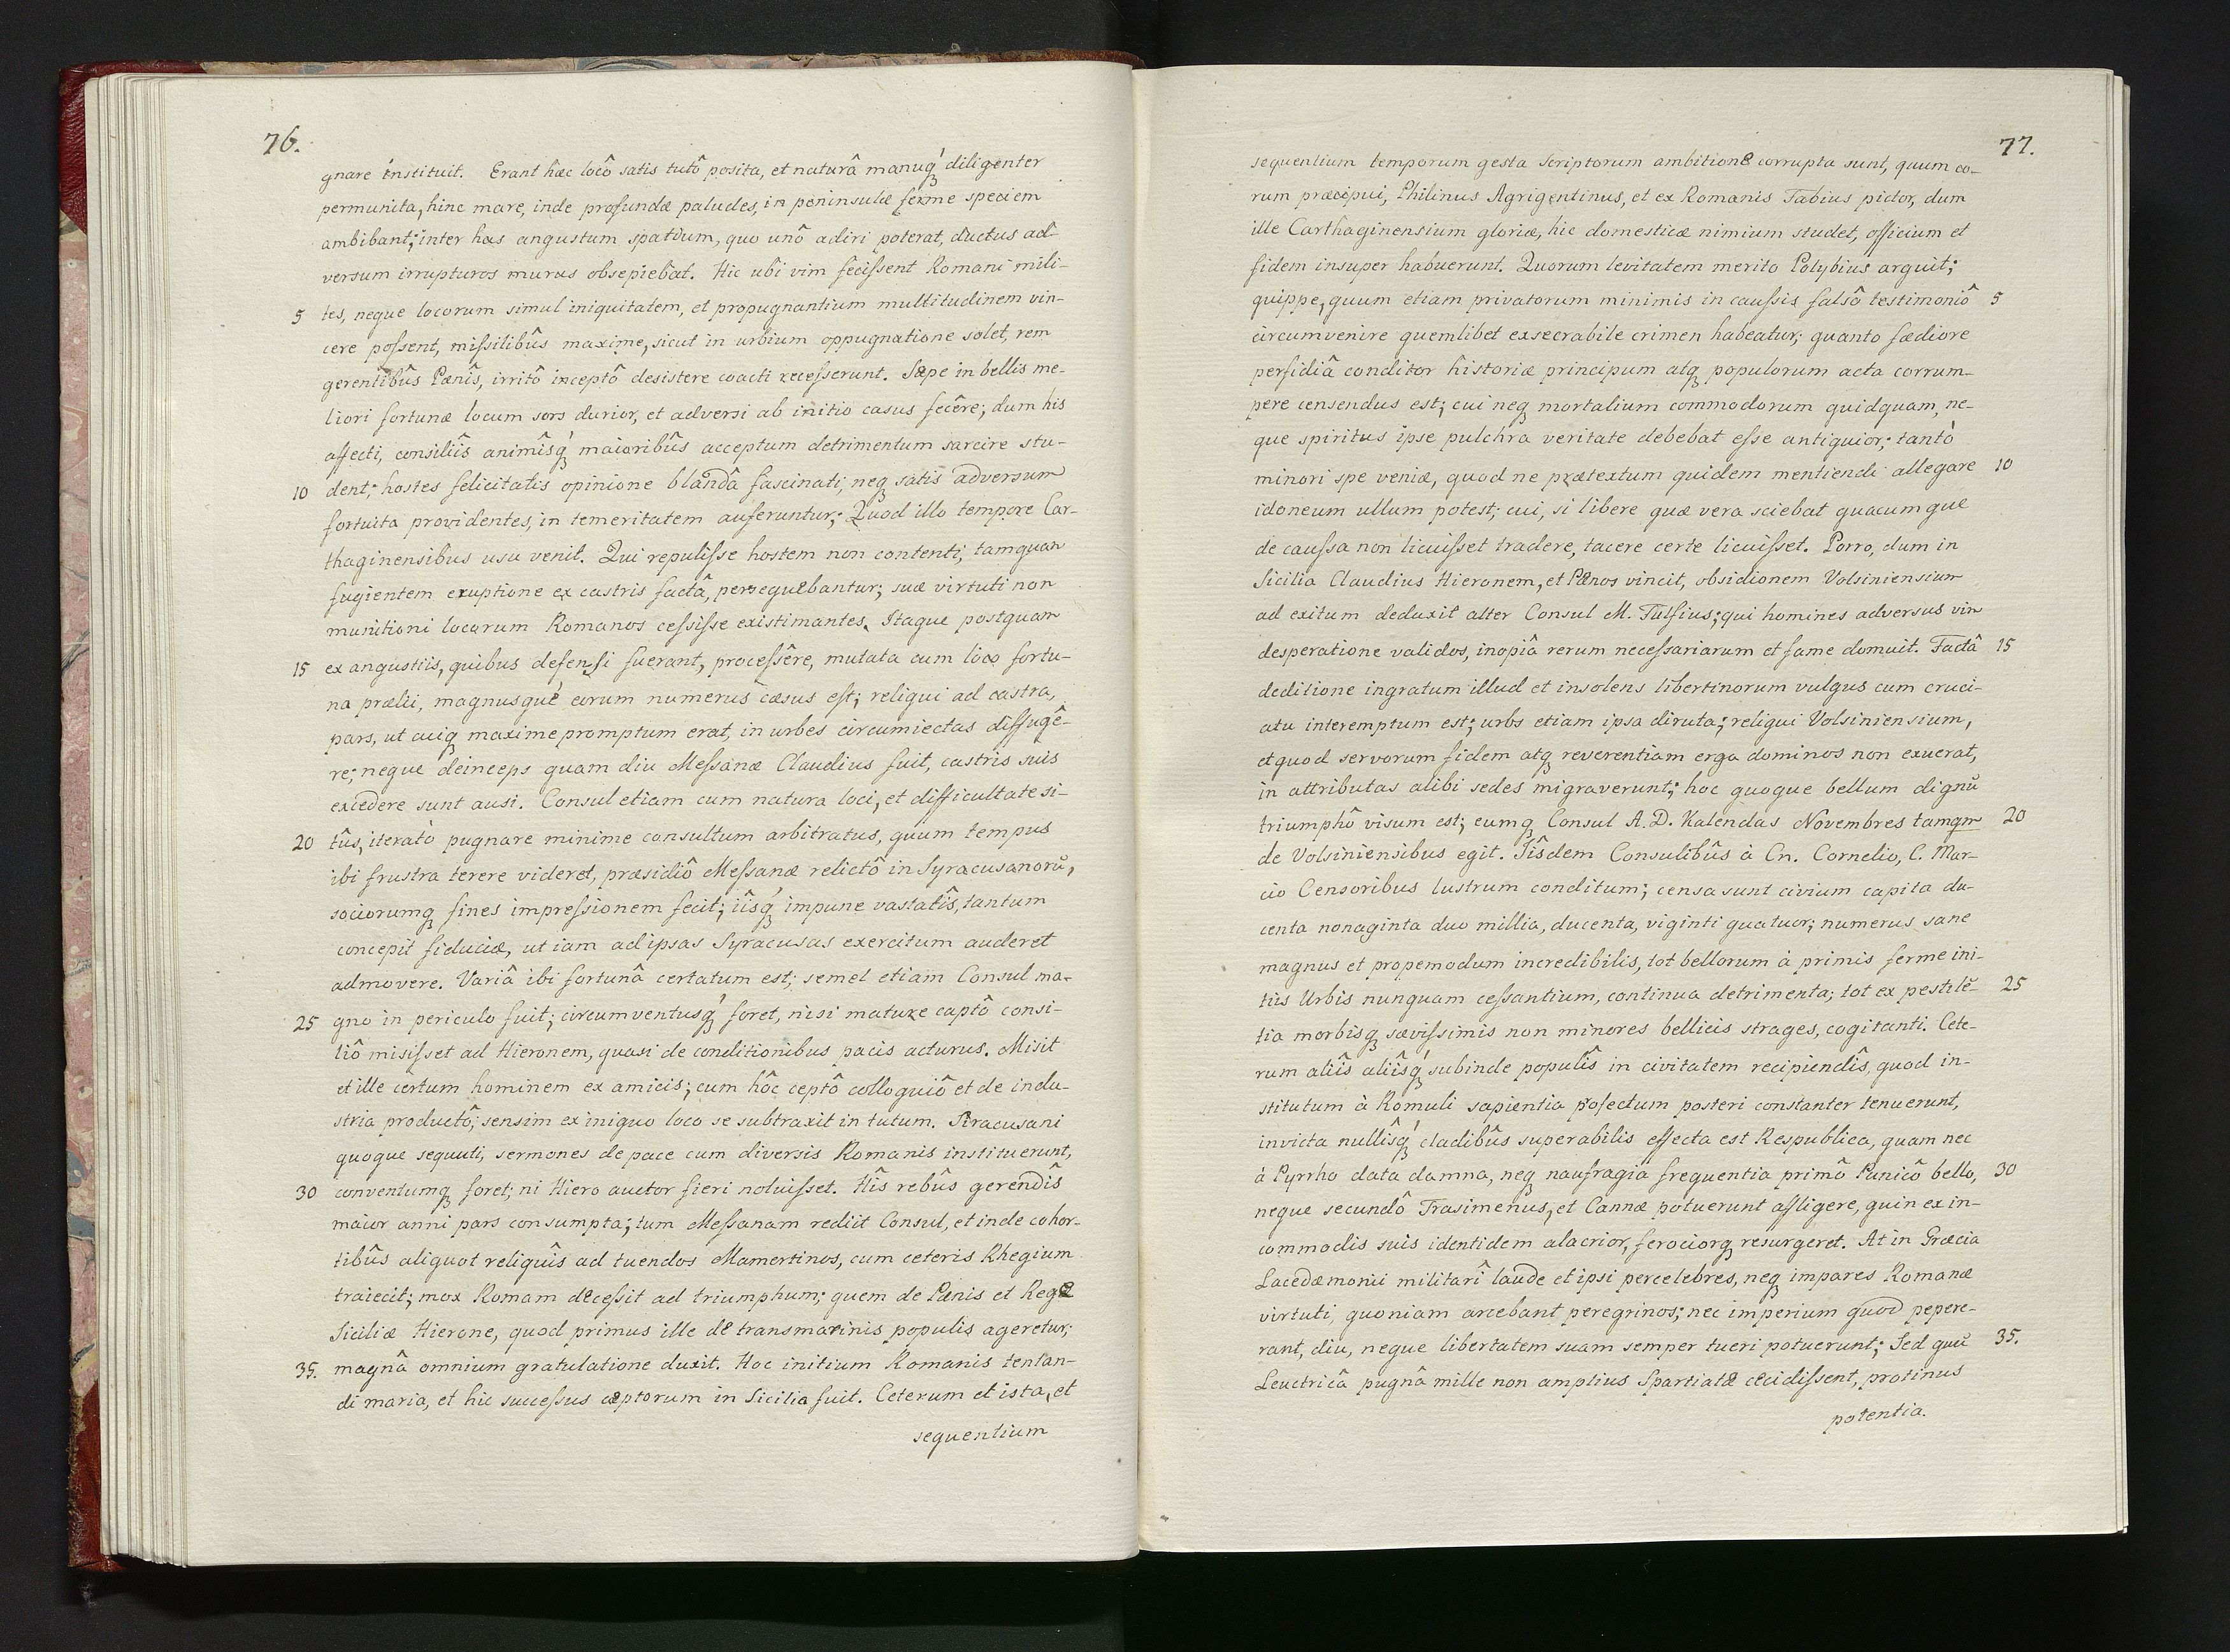 76.
gnare instituit. Erant hæc locô satis tutô posita, et naturâ manuq́ꝫ diligenter
permunita, hinc mare, inde profundæ paludes, in peninsulæ ferme speciem
ambibant; inter has angustum spatium, quo unô adiri poterat, ductus ad-
versum irrupturos murus obsepiebat. Hic ubi vim fecissent Romani mili-
5 tes, neque locorum simul iniquitatem, et propugnantium multitudinem vin-
cere possent, missilibûs maxime, sicut in urbium oppugnatione solet, rem
gerentibûs Pœnîs, irritô inceptô desistere coacti recesserunt. Sæpe in bellis me-
liori fortunæ locum sors durior, et adversi ab initio casus fecêre; dum his
affecti, consiliîs animîsq́ꝫ maioribûs acceptum detrimentum sarcire stu-
10 dent; hostes felicitatis opinione blandâ fascinati, neqꝫ satis adversum
fortuita providentes, in temeritatem auferuntur; Quod illo tempore Car-
thaginensibus usu venit. Qui repulisse hostem non contenti, tamquam
fugientem eruptione ex castris factâ, persequebantur; suæ virtuti non
munitioni locorum Romanos cessisse existimantes. Itaque postquam
15 ex angustiis, quibus defensi fuerant, processêre, mutata cum loco fortu-
na prælii, magnusque eorum numerus cæsus est; reliqui ad castra,
pars, ut cuiqꝫ maxime promptum erat, in urbes circumiectas diffugê-
re; neque deinceps quam diu Messanæ Claudius fuit, castris suis
excedere sunt ausi. Consul etiam cum natura loci, et difficultate si-
20 tûs, iterato pugnare minime consultum arbitratus, quum tempus
ibi frustra terere videret, præsidiô Messanæ relictô in Syracusanorũ,
sociorumqꝫ fines impressionem fecit; iîsq́ꝫ impune vastatîs, tantum
concepit fiduciæ, ut iam ad ipsas Syracusas exercitum auderet
admovere. Variâ ibi fortunâ certatum est; semel etiam Consul ma-
25 gno in periculo fuit; circumventusq́ꝫ foret, nisi mature captô consi-
liô misisset ad Hieronem, quasi de conditionibus pacis acturus. Misit
et ille certum hominem ex amicis; cum hôc ceptô colloquiô et de indu-
stria productô; sensim ex iniquo loco se subtraxit in tutum. Siracusani
quoque sequuti, sermones de pace cum diversis Romanis instituerunt,
30 conventumqꝫ foret; ni Hiero auctor fieri noluisset. Hîs rebûs gerendîs
maior anni pars consumpta; tum Messanam rediit Consul, et inde cohor-
tibûs aliquot reliquîs ad tuendos Mamertinos, cum ceteris Rhegium
traiecit; mox Romam decessit ad triumphum; quem de Pœnis et Rege
Siciliæ Hierone, quod primus ille de transmarinis populis ageretur;
35. magnâ omnium gratulatione duxit. Hoc initium Romanis tentan-
di maria, et hic successus cœptorum in Sicilia fuit. Ceterum et ista, et
sequentium
77.
sequentium temporum gesta scriptorum ambitione corrupta sunt, quum eo-
rum præcipui, Philinus Agrigentinus, et ex Romanis Fabius pictor, dum
ille Carthaginensium gloriæ, hic domesticæ nimium studet, officium et
fidem insuper habuerunt. Quorum levitatem merito Polybius arguit;
quippe, quum etiam privatorum minimis in caussis falsô testimoniô 5
circumvenire quemlibet exsecrabile crimen habeatur; quanto fœdiore
perfidiâ conditor historiæ principum atqꝫ populorum acta corrum-
pere censendus est; cui neqꝫ mortalium commodorum quidquam, ne-
que spiritus ipse pulchra veritate debebat esse antiquior; tantò
minori spe veniæ, quod ne prætextum quidem mentiendi allegare 10
idoneum ullum potest; cui, si libere quæ vera sciebat quacumque
de caussa non licuisset tradere, tacere certe licuisset. Porro, dum in
Sicilia Claudius Hieronem, et Pœnos vincit, obsidionem Volsiniensium
ad exitum deduxit alter Consul M. Fulfius; qui homines adversus vim
desperatione validos, inopiâ rerum necessariarum et fame domuit. Factâ 15
deditione ingratum illud et insolens libertinorum vulgus cum cruci-
atu interemptum est; urbs etiam ipsa diruta; reliqui Volsiniensium,
et quod servorum fidem atqꝫ reverentiam erga dominos non exuerat,
in attributas alibi sedes migraverunt; hoc quoque bellum dignũ
triumphô visum est; eumqꝫ Consul A.D. Kalendas Novembres tamqm 20
de Volsiniensibus egit. Iîsdem Consulibûs à Cn. Cornelio, C. Mar-
cio Censoribus lustrum conditum; censa sunt civium capita du-
centa nonaginta duo millia, ducenta, viginti quatuor; numerus sane
magnus et propemodum incredibilis, tot bellorum à primis ferme ini-
tiis Urbis nunquam cessantium, continua detrimenta; tot ex pestilẽ- 25
tia morbisqꝫ sævissimis non minores bellicis strages, cogitanti. Cete-
rum aliîs aliîsq́ꝫ subinde populîs in civitatem recipiendîs, quod in-
stitutum à Romuli sapientia profectum posteri constanter tenuerunt,
invicta nullîsq́ꝫ cladibûs superabilis effecta est Respublica, quam nec
à Pyrrho data damna, neqꝫ naufragia frequentia primô Punicô bello, 30
neque secundô Trasimenus, et Cannæ potuerunt affligere, quin ex in-
commodis suis identidem alacrior, ferociorqꝫ resurgeret. At in Græcia
Lacedæmonii militarî laude et ipsi percelebres, neqꝫ impares Romanæ
virtuti, quoniam arcebant peregrinos; nec imperium quod pepere-
rant, diu, neque libertatem suam semper tueri potuerunt; Sed quũ 35.
Leuctricâ pugnâ mille non amplius Spartiatæ cecidissent, protinus
potentia.